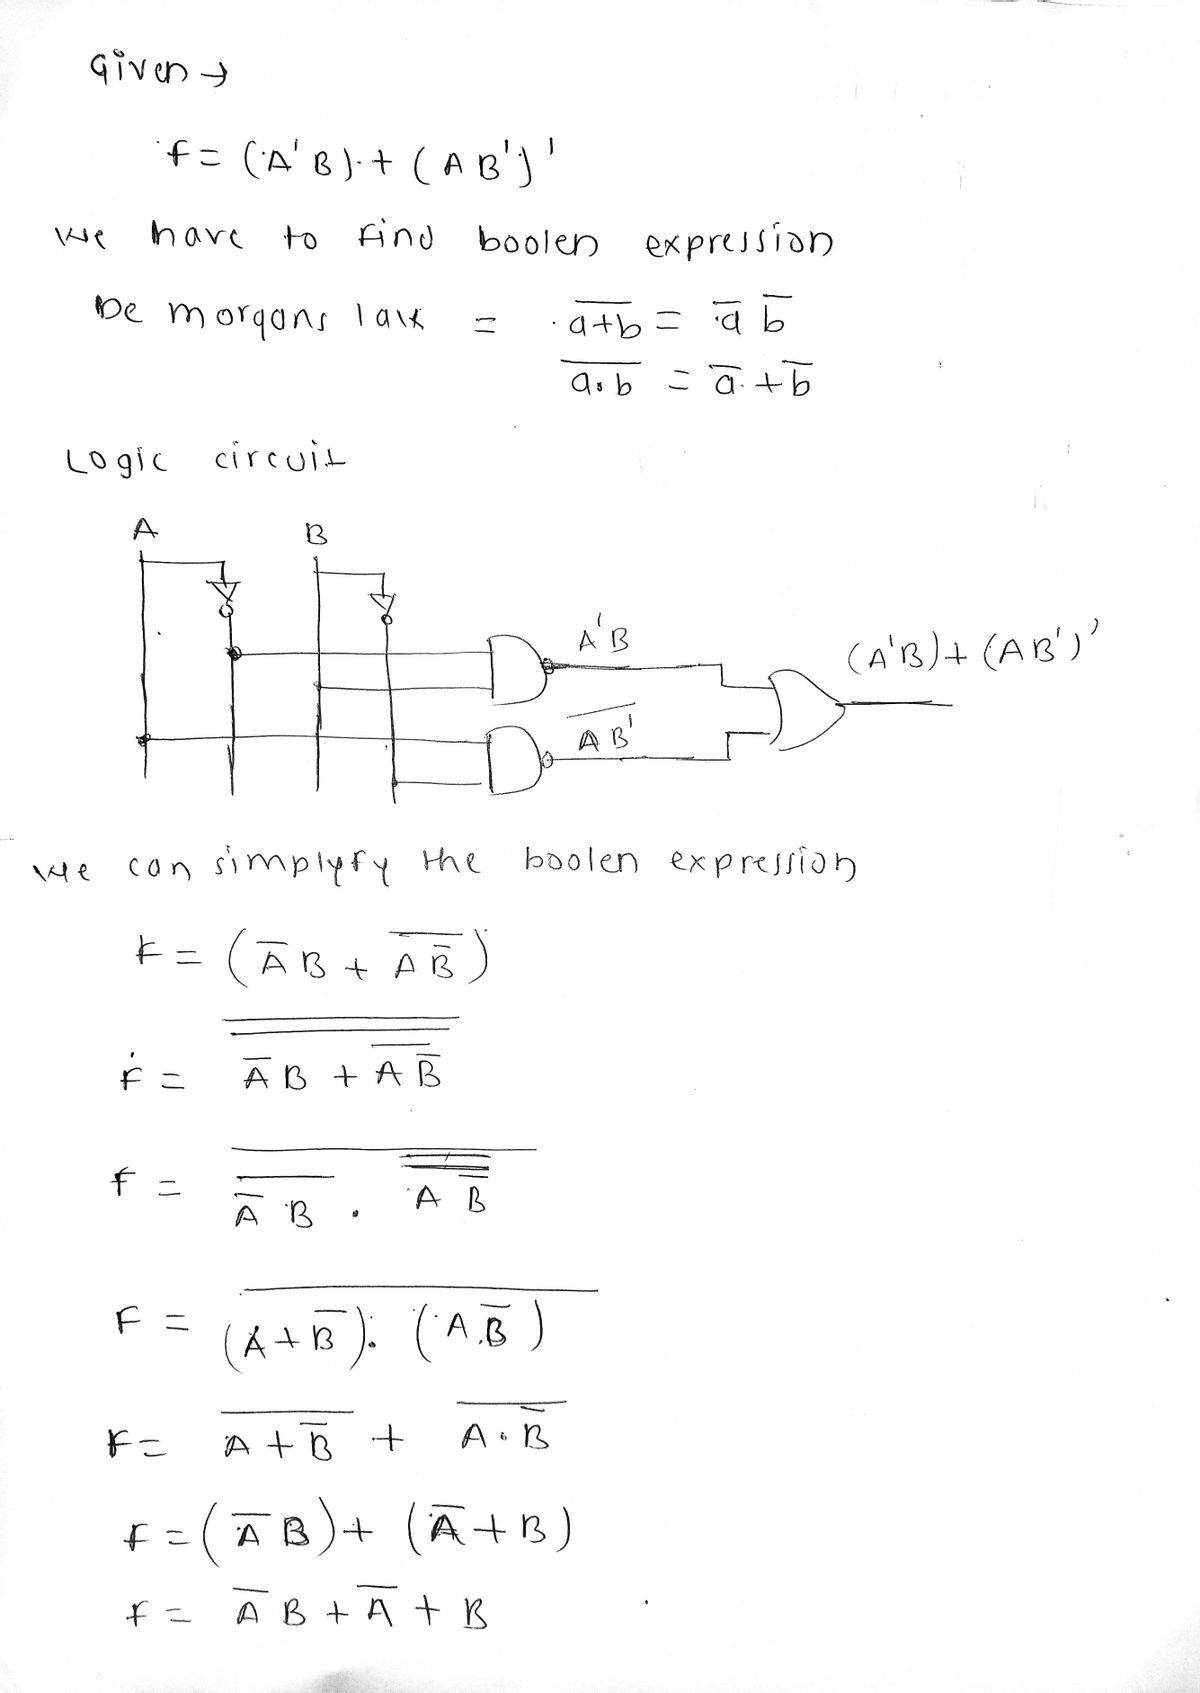 Given →
f = (A'B) + (AB')'
We have to find boolen expression
De morgans law = a̅+̅b̅ = a̅ b̅
a̅.̅b̅ = a̅ + b̅
Logic circuit
A B
A'B
(A'B) + (AB')'
A̅B̅'̅
We can simplyfy the boolen expression
F = (A̅B + \overline{A\overline{B}})
F = \overline{\overline{\overline{A}B + \overline{A\overline{B}}}}
f = \overline{\overline{\overline{A}B} . \overline{\overline{A\overline{B}}}}
F = \overline{(A+\overline{B}). (A.\overline{B})}
F = \overline{A+\overline{B}} + \overline{A.\overline{B}}
f = (A̅B) + (A̅+B)
f = A̅B + A̅ + B